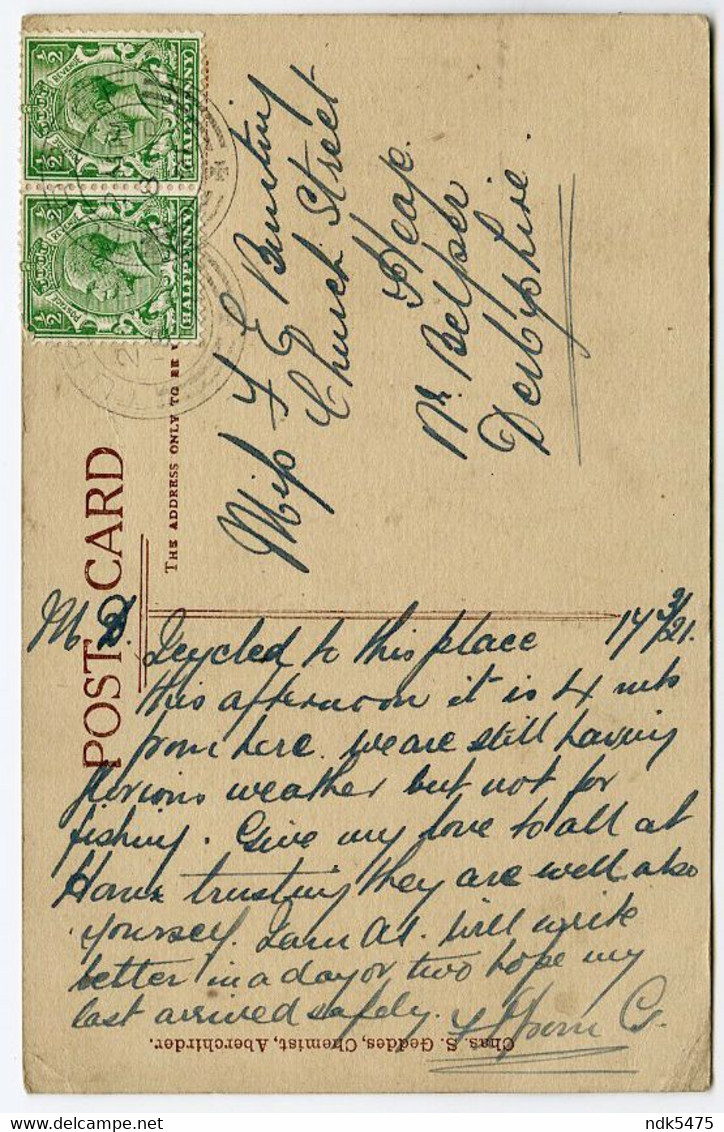 POST CARD
THE ADDRESS ONLY TO BE
½ POSTAGE REVENUE ½
HALFPENNY
½ POSTAGE REVENUE ½
HALFPENNY
Miss F E Bunting
Church Street
Heage
Nr Belper
Derbyshire.
M D. 14/3/21.
I cycled to this place
this afternoon it is 4 mls
from here. We are still having
glorious weather but not for
fishing. Give my love to all at
Home trusting they are well also
yourself. I am A1. Will write
letter in a day or two hope my
last arrived safely. From G.
Chas. S. Geddes, Chemist, Aberchirder.
ndk5475